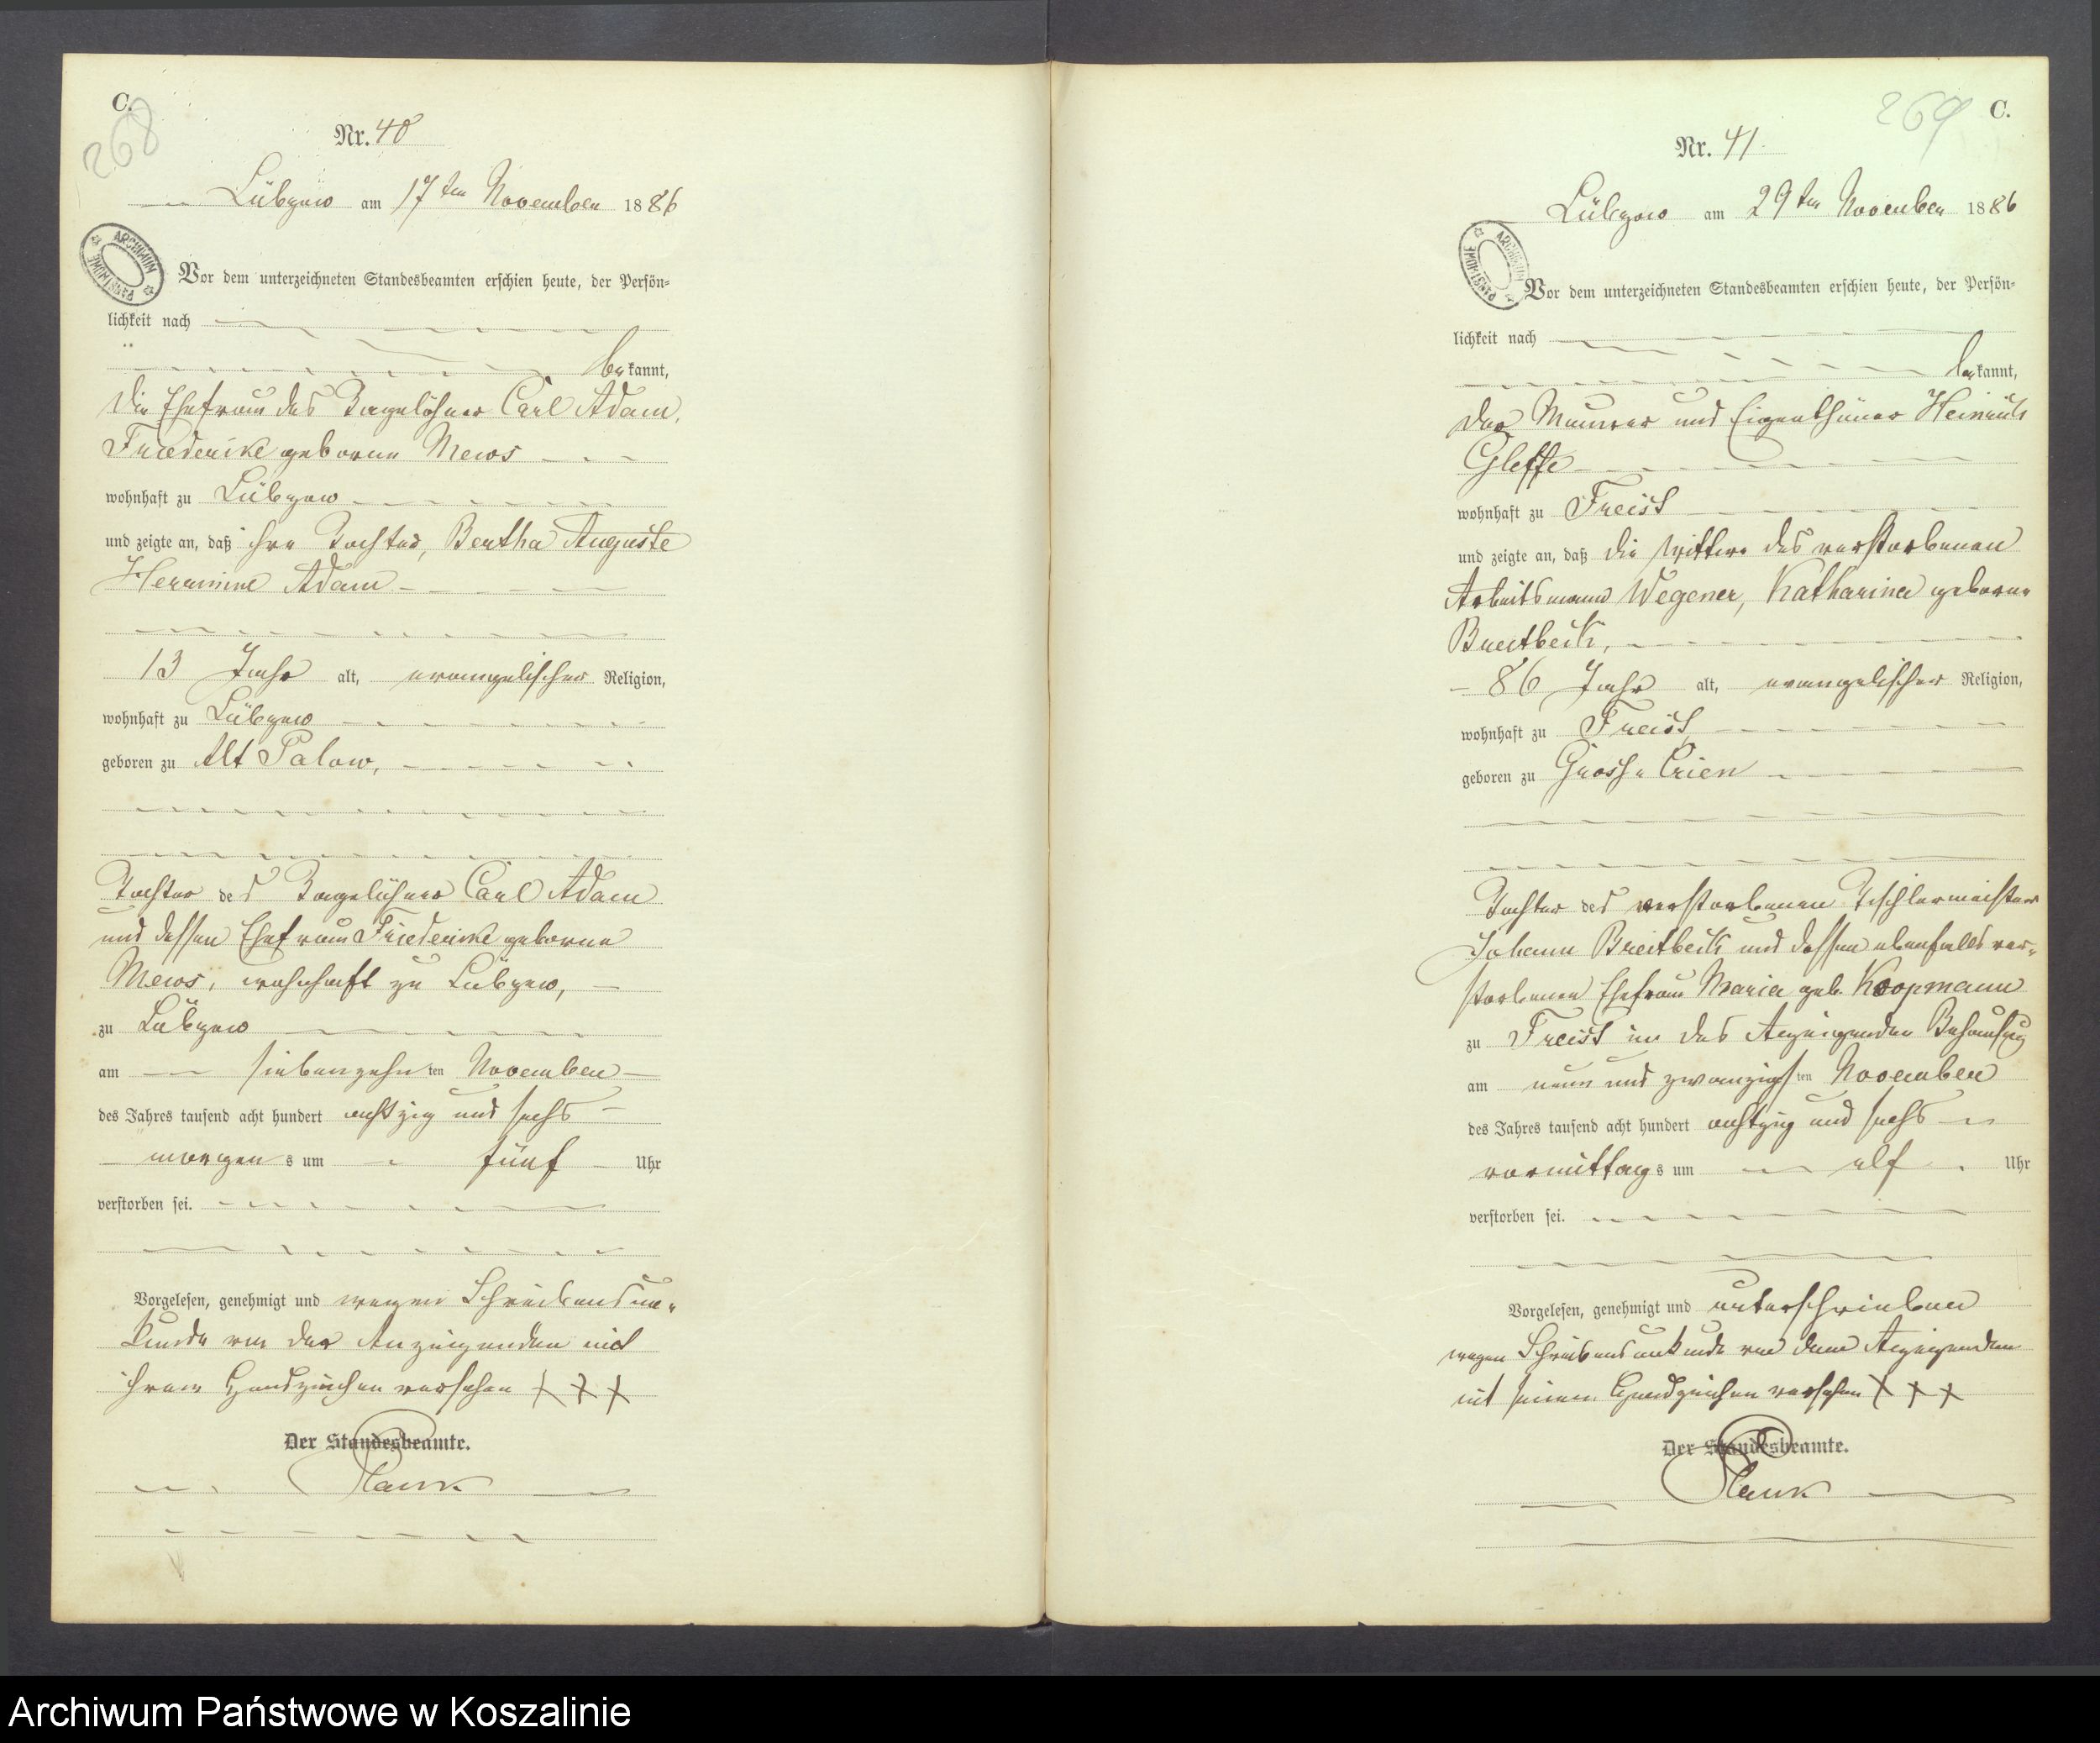 C.
268
Nr. 40
Lübzow am 17ten November 1886
ARCHIWUM PAŃSTWOWE
Vor dem unterzeichneten Standesbeamten erschien heute, der Persön-
lichkeit nach
bekannt,
die Ehefrau des Tagelöhner Carl Adam,
Friederike geborne Mews
wohnhaft zu Lübzow
und zeigte an, daß ihre Tochter, Bertha Auguste
Hermine Adam
13 Jahr alt, evangelischer Religion,
wohnhaft zu Lübzow
geboren zu Alt Palow,
Tochter des Tagelöhner Carl Adam
und dessen Ehefrau Friederike geborne
Mews, wohnhaft zu Lübzow,
zu Lübzow
am siebenzehnten November
des Jahres tausend acht hundert achtzig und sechs
morgens um fünf Uhr
verstorben sei.
Vorgelesen, genehmigt und wegen Schreibensun-
kunde von der Anzeigenden mit
ihrem Handzeichen versehen XXX
Der Standesbeamte.
C.
269
Nr. 41.
Lübzow am 29ten November 1886
ARCHIWUM PAŃSTWOWE
Vor dem unterzeichneten Standesbeamten erschien heute, der Persön-
lichkeit nach
bekannt,
der Maurer und Eigenthümer Heinrich
Gleffe
wohnhaft zu Freist
und zeigte an, daß die Wittwe des verstorbenen
Arbeitsmann Wegener, Katharina geborne
Breitbeck,
86 Jahr alt, evangelischer Religion,
wohnhaft zu Freist,
geboren zu Grosse Crien
Tochter des verstorbenen Tischlermeister
Johann Breitbeck und dessen ebenfalls ver-
storbenen Ehefrau Maria geb. Koopmann
zu Freist in des Anzeigenden Behausung
am neun und zwanzigsten November
des Jahres tausend acht hundert achtzig und sechs
vormittags um elf Uhr
verstorben sei.
Vorgelesen, genehmigt und unterschrieben
wegen Schreibensunkunde von dem Anzeigenden
mit seinem Handzeichen versehen XXX
Der Standesbeamte.
Archiwum Państwowe w Koszalinie